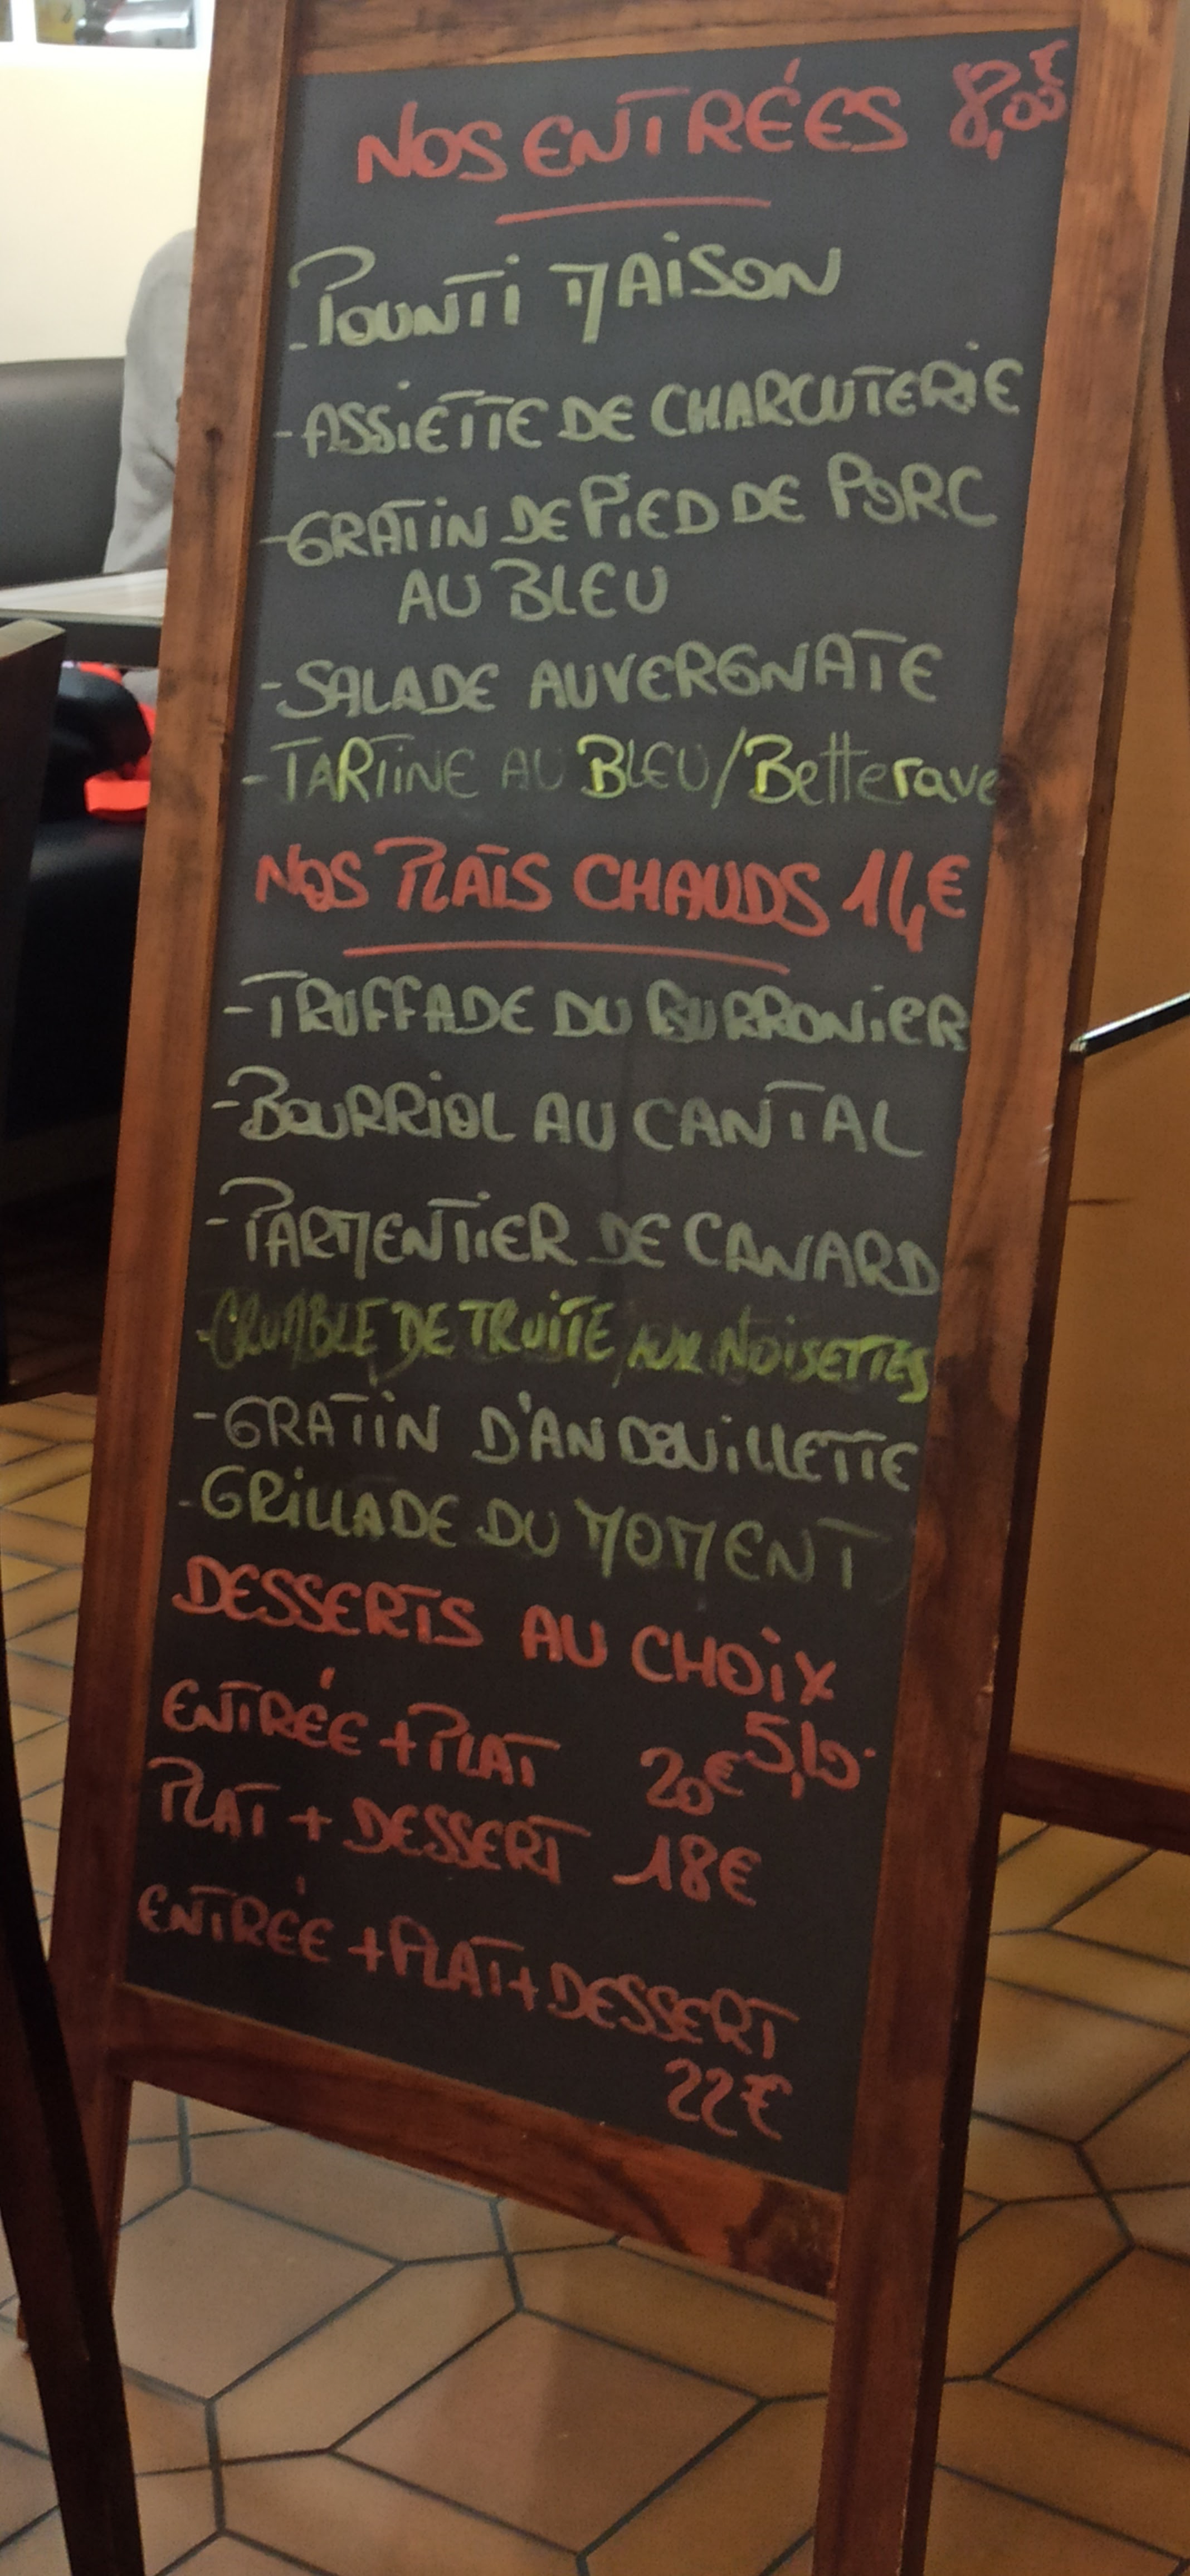 NOS ENTRÉES 8,00€
- POUNTI MAISON
- ASSIETTE DE CHARCUTERIE
- GRATIN DE PIED DE PORC
AU BLEU
- SALADE AUVERGNATE
- TARTINE AU BLEU/Betterave
NOS PLATS CHAUDS 14€
- TRUFFADE DU BURRONIER
- BOURRIOL AU CANTAL
- PARMENTIER DE CANARD
- CRUMBLE DE TRUITE AUX NOISETTES
- GRATIN D'ANDOUILLETTE
- GRILLADE DU MOMENT
DESSERTS AU CHOIX
ENTRÉE + PLAT 20€
PLAT + DESSERT 18€
ENTRÉE + PLAT + DESSERT
22€